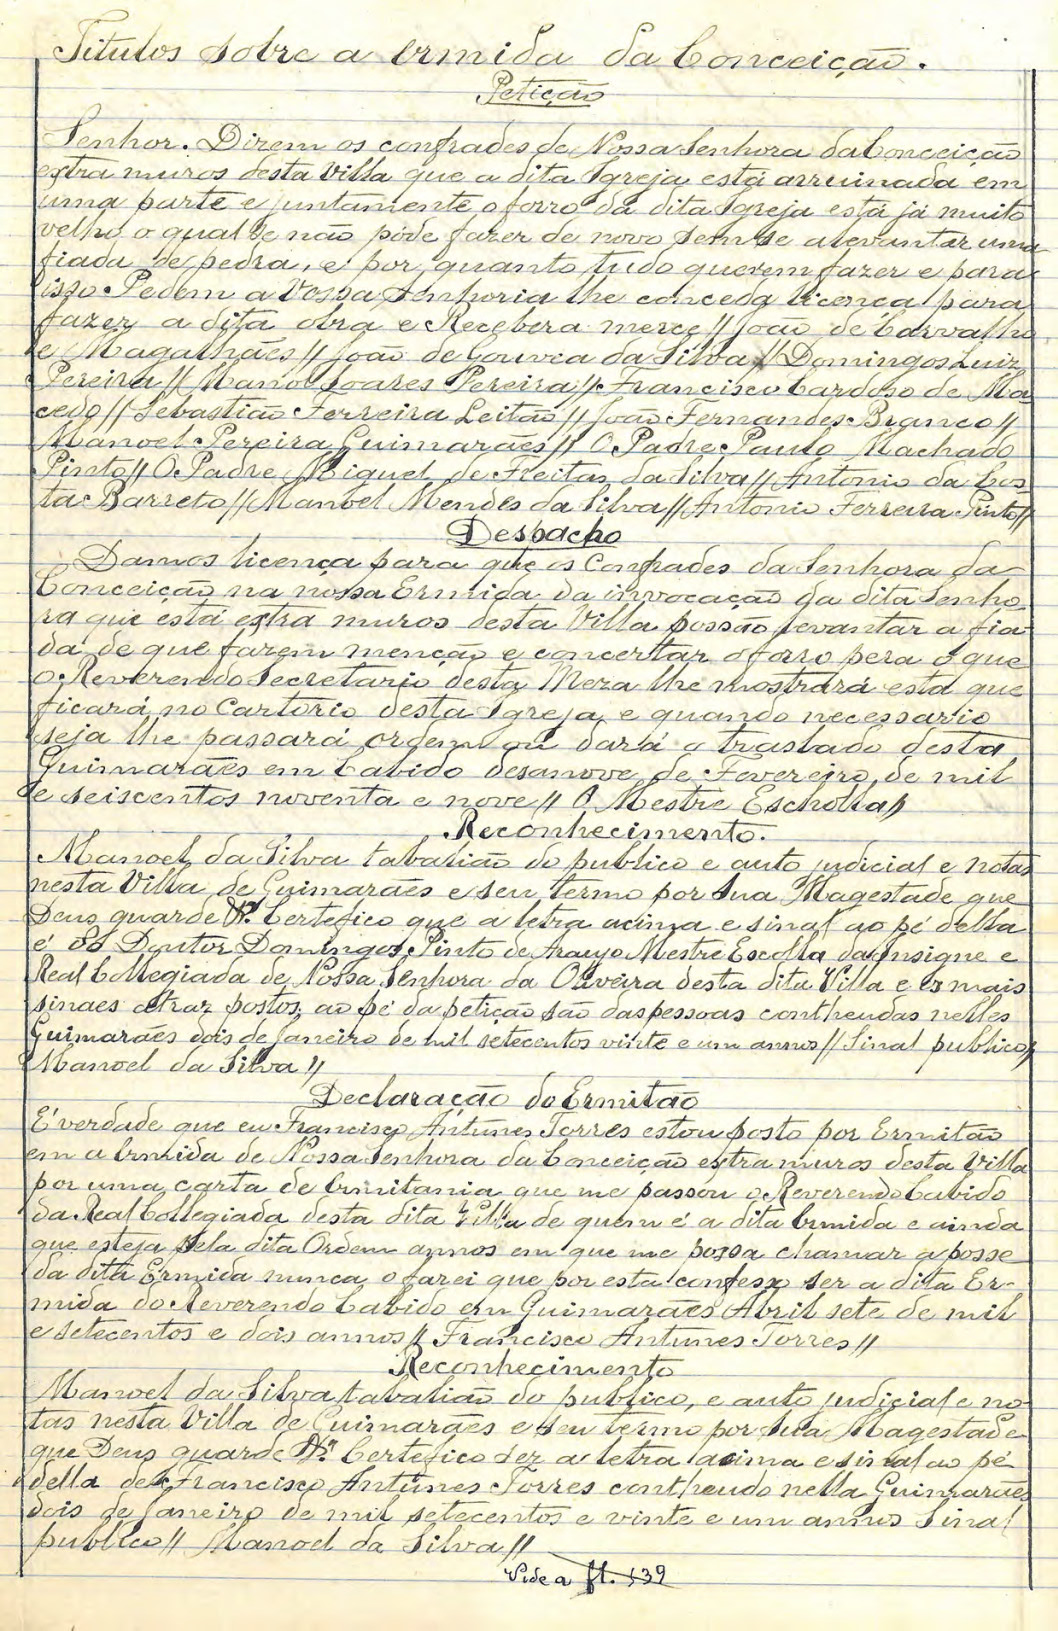 Titulos sobre a Ermida da Conceição.
Petição
Senhor. Dizem os confrades de Nossa Senhora da Conceição
extra muros desta Villa que a dita Igreja está arruinada em
uma parte e juntamente o forro da dita Igreja está já muito
velho o qual se não póde fazer de novo sem se alevantar uma
fiada de pedra, e por quanto tudo querem fazer e para
isso Pedem a Vossa Senhoria lhe conceda licença para
fazer a dita obra e Receberá mercê // João de Carvalho
e Magalhães // João de Gouvea da Silva // Domingos Luiz
Pereira // Manoel Soares Pereira // Francisco Cardoso de Ma-
cedo // Sebastião Ferreira Leitão // João Fernandes Branco //
Manoel Pereira Guimarães // O Padre Paulo Machado
Pinto // O Padre Miguel de Freitas da Silva // Antonio da Cos-
ta Barreto // Manoel Mendes da Silva // Antonio Ferreira Pinto //
Despacho
Damos licença para que os Confrades da Senhora da
Conceição na nossa Ermida da invocação da dita Senho-
ra que está extra muros desta Villa possão levantar a fia-
da de que fazem menção e concertar o forro pera o que
o Reverendo Secretario desta Meza lhe mostrará esta que
ficará no Cartorio desta Igreja e quando necessario
seja lhe passará ordem ou dará o traslado desta
Guimarães em Cabido desanove de Fevereiro de mil
e seiscentos noventa e nove // O Mestre Escholla //
Reconhecimento.
Manoel da Silva tabalião do publico e auto judicial e notas
nesta Villa de Guimarães e seu termo por Sua Magestade que
Deus guarde Certefico que a letra acima e sinal ao pé della
é do Doutor Domingos Pinto de Araujo Mestre Escolla da Insigne e
Real Collegiada de Nossa Senhora da Oliveira desta dita Villa e os mais
sinaes atraz postos ao pé da petição são das pessoas contheudas nelles
Guimarães dois de Janeiro de mil setecentos vinte e um annos // Sinal publico //
Manoel da Silva //
Declaração do Ermitão
É verdade que eu Francisco Antunes Torres estou posto por Ermitão
em a Ermida de Nossa Senhora da Conceição extra muros desta Villa
por uma carta de Ermitania que me passou o Reverendo Cabido
da Real Collegiada desta dita Villa de quem é a dita Ermida e ainda
que esteja pela dita Ordem annos em que me possa chamar a posse
da dita Ermida nunca o farei que por esta confesso ser a dita Er-
mida do Reverendo Cabido em Guimarães Abril sete de mil
e setecentos e dois annos // Francisco Antunes Torres //
Reconhecimento
Manoel da Silva tabalião do publico, e auto judicial e no-
tas nesta Villa de Guimarães e seu termo por sua Magestade
que Deus guarde Certefico ser a letra acima e sinal ao pé
della de Francisco Antunes Torres contheudo nella Guimarães
dois de Janeiro de mil setecentos e vinte e um annos Sinal
publico // Manoel da Silva //
Vide a fl. 139